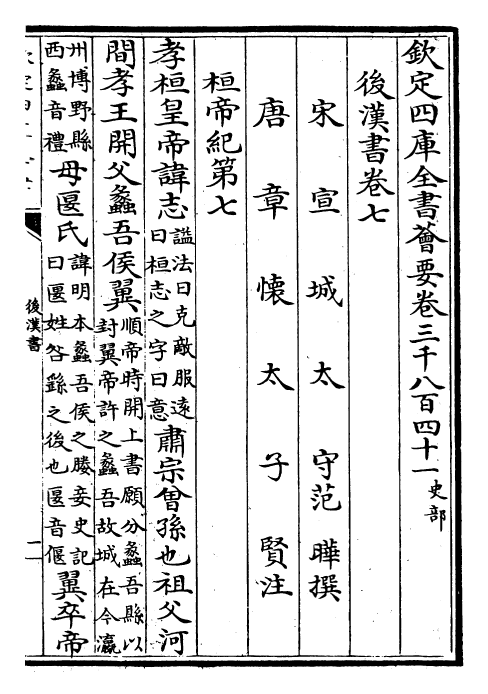 欽定四庫全書薈要卷三千八百四十一史部
後漢書卷七
宋宣城太守范曄撰
唐章懷太子賢注
桓帝紀第七
孝桓皇帝諱志諡法曰克敵服逺曰桓志之字曰意肅宗曾孫也祖父河
間孝王開父蠡吾侯翼順帝時開上書願分蠡吾縣以封翼帝許之蠡吾故城在今瀛
州博野縣西蠡音禮母匽氏諱明本蠡吾侯之媵妾史記曰匽姓咎繇之後也匽音偃翼卒帝
後漢書
一